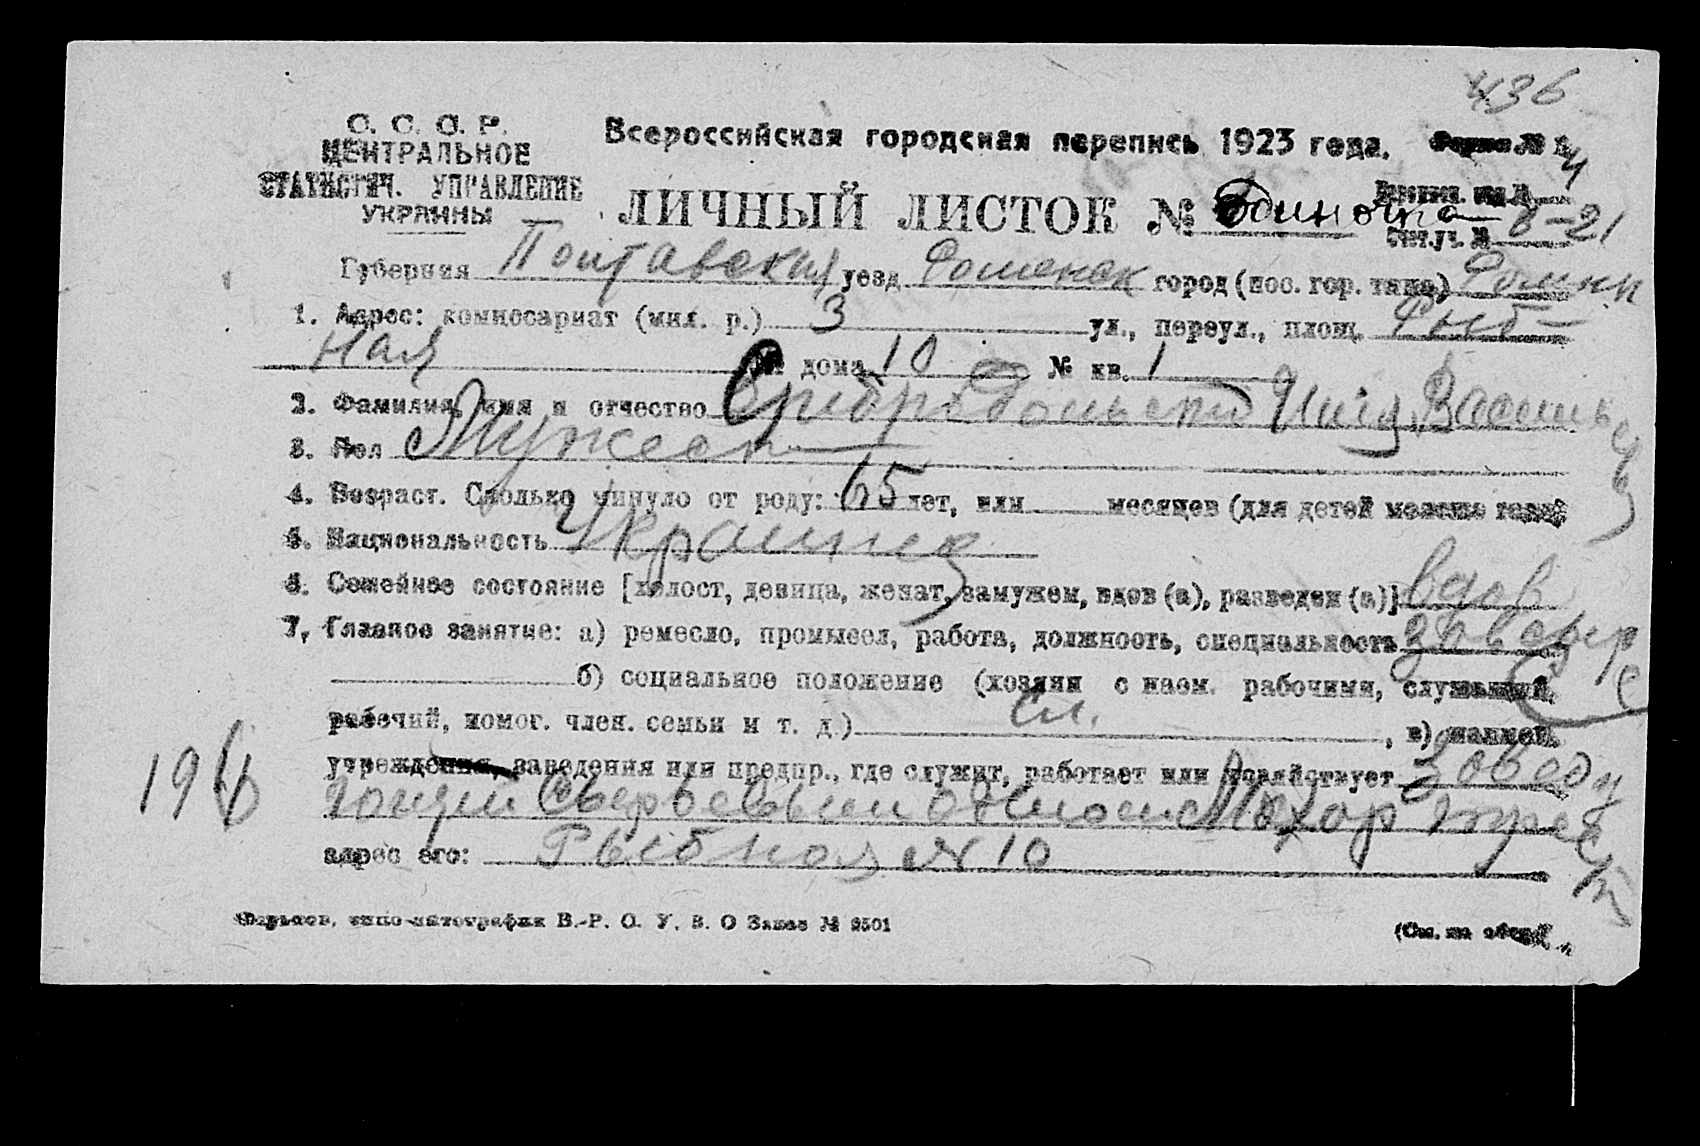 436
С. С. С. Р.
ЦЕНТРАЛЬНОЕ
СТАТИСТИЧ. УПРАВЛЕНИЕ
УКРАИНЫ
Всероссийская городская перепись 1923 года. Форма № 1
ЛИЧНЫЙ ЛИСТОК № Одиночка
4
Счет. уч. № 8-21
Губерния Полтавская уезд Роменск город (пос. гор. типа) Ромны
1. Адрес: комиссариат (мил. р.) 3 ул., переул., площ. Рыб-
ная № дома 10 № кв. 1
2. Фамилия, имя и отчество Василь
3. Пол Мужеск
4. Возраст. Сколько минуло от роду: 65 лет, или месяцев (для детей моложе года)
5. Национальность Украинец
6. Семейное состояние [холост, девица, женат, замужем, вдов (а), разведен (а)] вдов
7. Главное занятие: а) ремесло, промысел, работа, должность, специальность
б) социальное положение (хозяин с наем. рабочими, служащий,
рабочий, помог. член. семьи и т. д.) Сл. , в) наимен.
учреждения, заведения или предпр., где служит, работает или хозяйствует Заведу
194
ющий Махор трест
адрес его: Рыбная № 10
Харьков, типо-литография В.-Р. О. У. В. О Заказ № 9501
(См. на обор.)